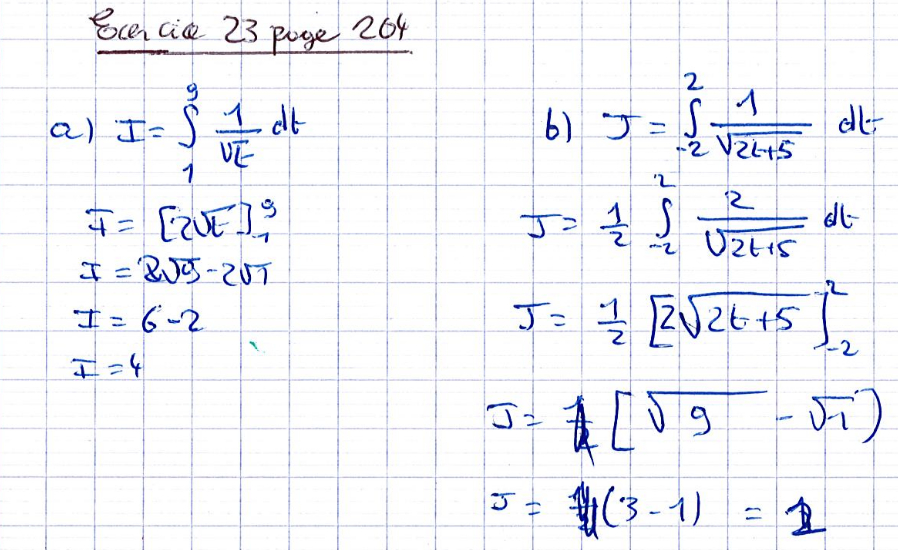 Exercice 23 page 204
a) I = ∫₁⁹ 1/√t dt
I = [2√t]₁⁹
I = 2√9 - 2√1
I = 6 - 2
I = 4
b) J = ∫₋₂² 1/√(2t+5) dt
J = 1/2 ∫₋₂² 2/√(2t+5) dt
J = 1/2 [2√(2t+5)]₋₂²
J = [√9 - √1)
J = (3 - 1) =